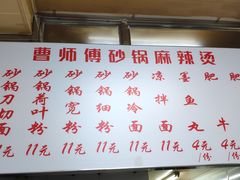 曹师傅砂锅麻辣烫
砂锅刀切面
砂锅荷叶面
砂锅宽粉
砂锅细粉
砂锅冷面
凉拌面
墨鱼丸
肥牛
11元 11元 11元 11元 11元 4元/份 4元/份